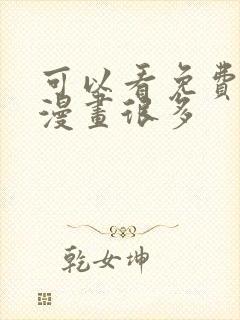 可以看免費
漫畫很多
乾女坤